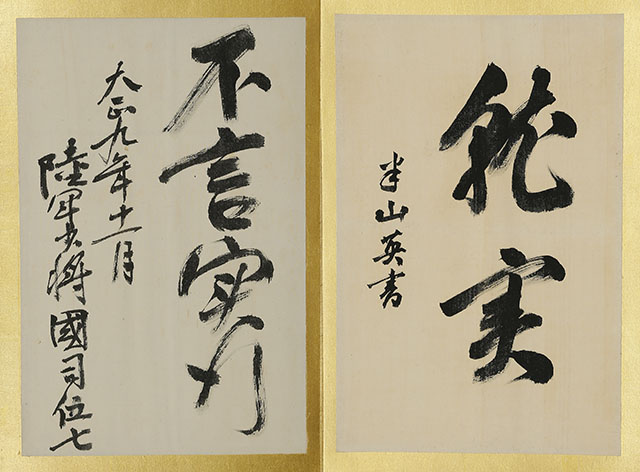 就実
半山英書
不言實行
大正九年十一月
陸軍少将國司伍七